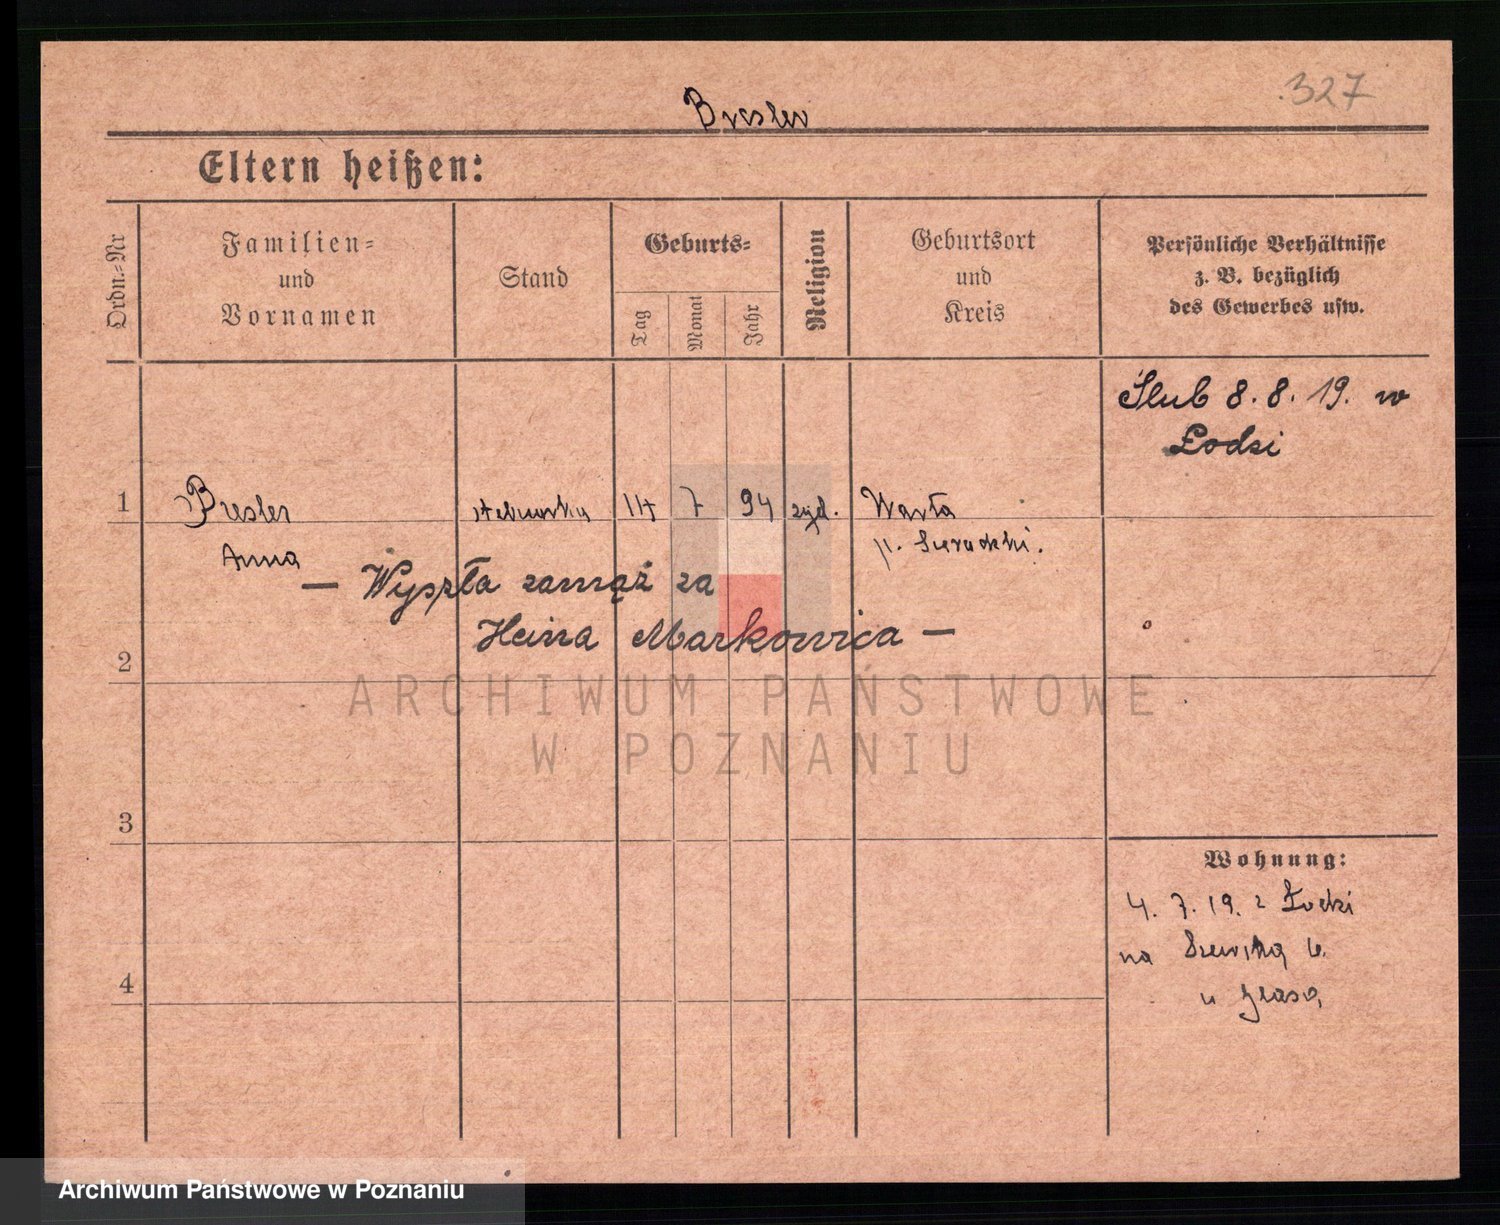 327
Bresler
Eltern heißen:
Ordn.=Nr
Familien=
und
Vornamen
Stand
Geburts=
Tag
Monat
Jahr
Religion
Geburtsort
und
Kreis
Persönliche Verhältnisse
z. B. bezüglich
des Gewerbes usw.
Ślub 8. 8. 19. w
Łodzi
1 Bresler 14 7 94 żyd. Warta
Anna p. Sieradzki.
— Wyszła zamąż za
Heina Markowica —
2
3
Wohnung:
4. 7. 19. z Łodzi
na Szewską 6.
u
4
ARCHIWUM PAŃSTWOWE
W POZNANIU
Archiwum Państwowe w Poznaniu